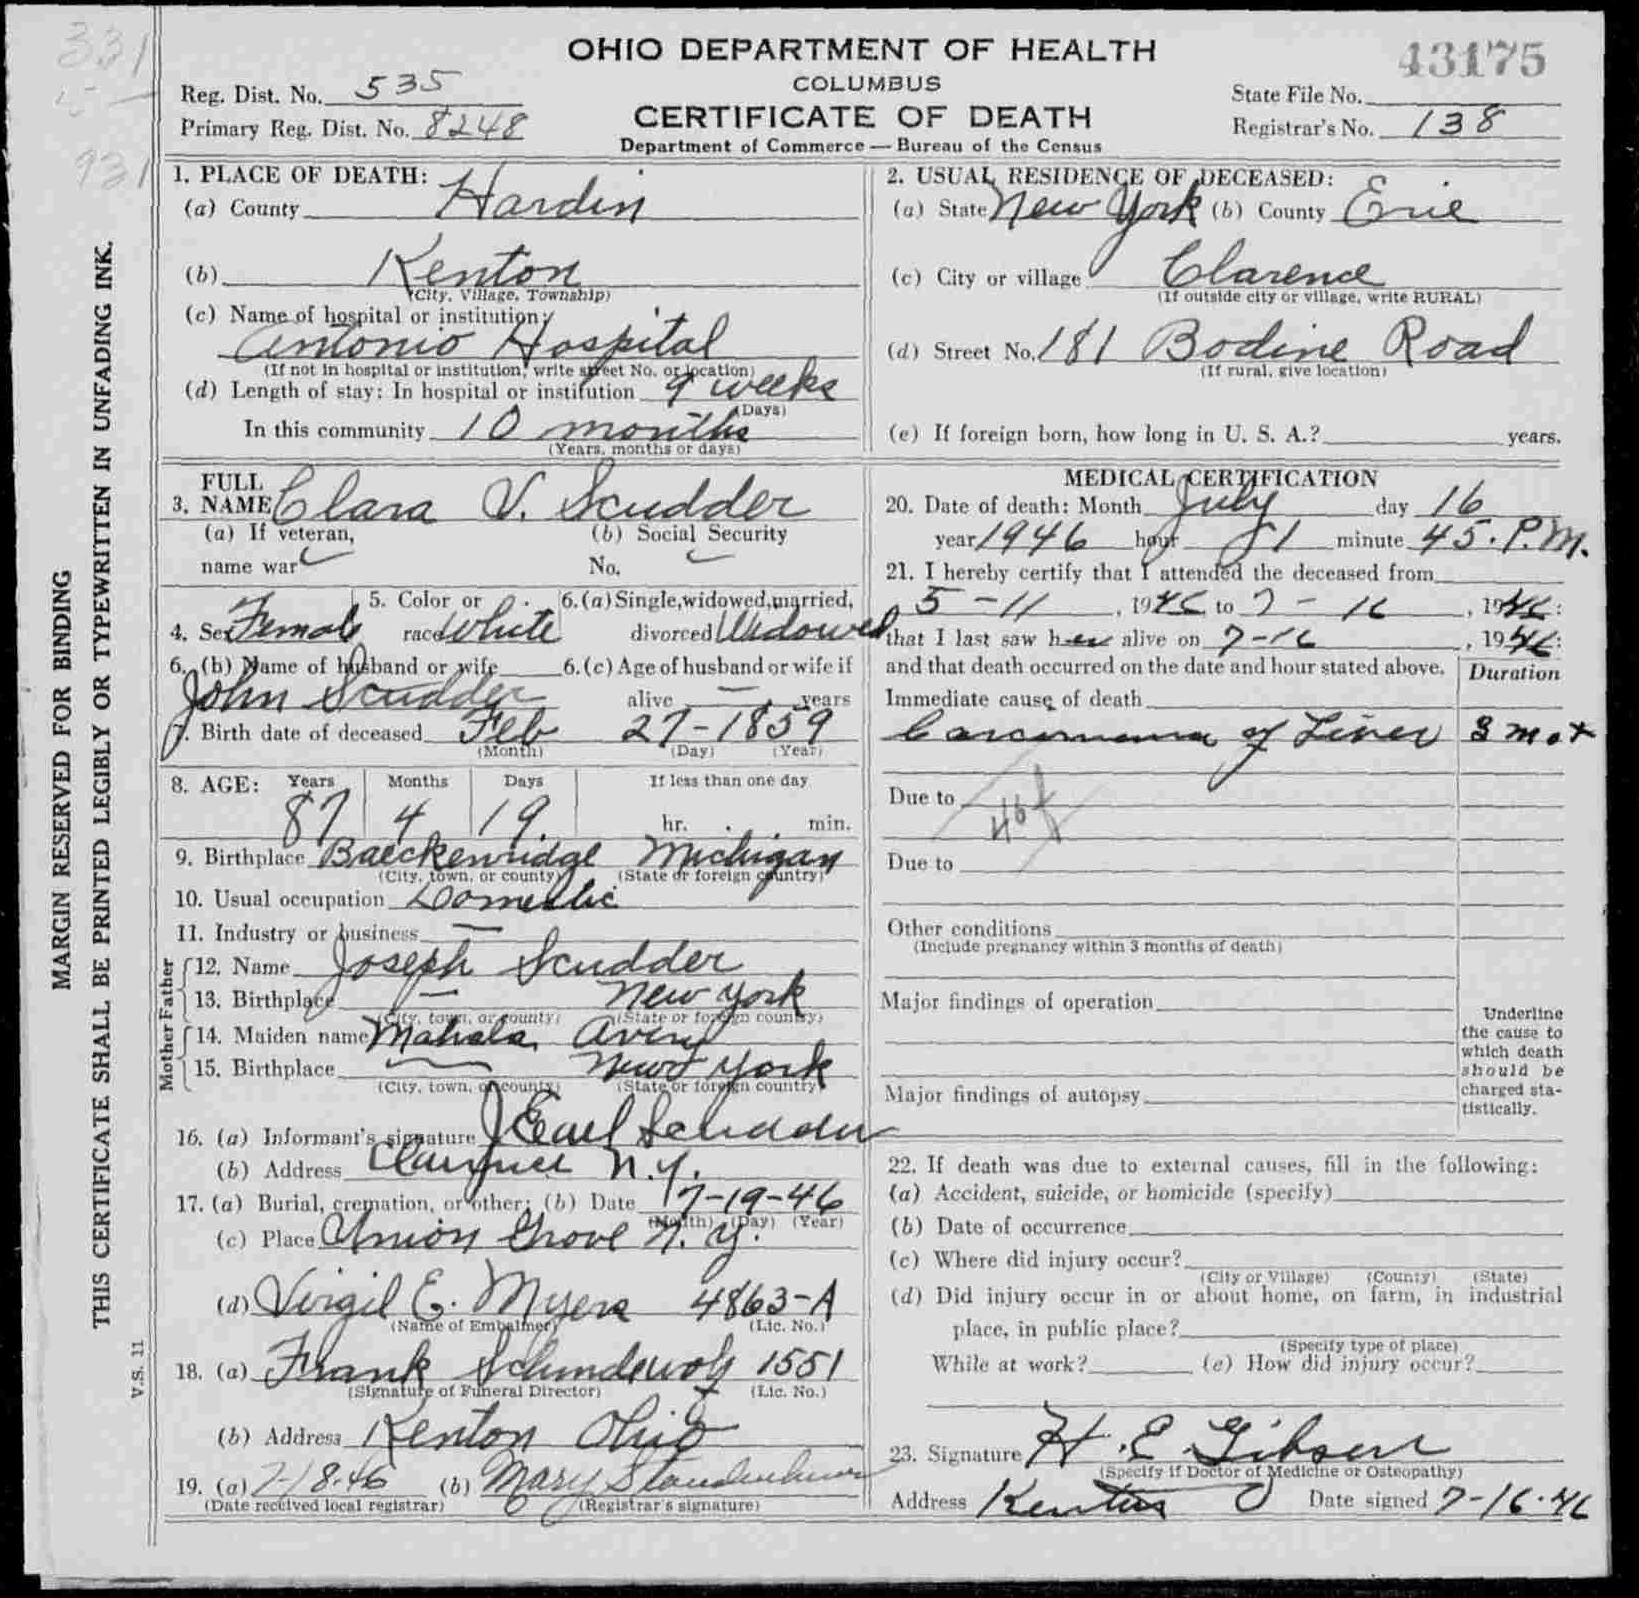 331
931
OHIO DEPARTMENT OF HEALTH
COLUMBUS
CERTIFICATE OF DEATH
Department of Commerce — Bureau of the Census
43175
Reg. Dist. No. 535
Primary Reg. Dist. No. 8248
State File No.
Registrar's No. 138
1. PLACE OF DEATH:
(a) County Hardin
(b) Kenton
(City, Village, Township)
(c) Name of hospital or institution:
Antonio Hospital
(If not in hospital or institution, write street No. or location)
(d) Length of stay: In hospital or institution 9 weeks
(Days)
In this community 10 months
(Years, months or days)
2. USUAL RESIDENCE OF DECEASED:
(a) State New York (b) County Erie
(c) City or village Clarence
(If outside city or village, write RURAL)
(d) Street No. 181 Bodine Road
(If rural, give location)
(e) If foreign born, how long in U. S. A.? years.
FULL
3. NAME Clara V. Scudder
(a) If veteran, (b) Social Security
name war No.
4. Sex Female 5. Color or race White 6. (a) Single, widowed, married, divorced Widowed
6. (b) Name of husband or wife 6. (c) Age of husband or wife if
John Scudder alive — years
7. Birth date of deceased Feb 27-1859
(Month) (Day) (Year)
8. AGE: Years Months Days If less than one day
87 4 19. hr. min.
9. Birthplace Baeckenridge Michigan
(City, town, or county) (State or foreign country)
10. Usual occupation Domestic
11. Industry or business —
Father
12. Name Joseph Scudder
13. Birthplace — New York
(City, town, or county) (State or foreign country)
Mother
14. Maiden name Mahala Avery
15. Birthplace — New York
(City, town, or county) (State or foreign country)
16. (a) Informant's signature J Earl Scudder
(b) Address Clarence N.Y.
17. (a) Burial, cremation, or other: (b) Date 7-19-46
(Month) (Day) (Year)
(c) Place Union Grove N. Y.
(d) Virgil E. Myers 4863-A
(Name of Embalmer) (Lic. No.)
18. (a) Frank Schindewolf 1551
(Signature of Funeral Director) (Lic. No.)
(b) Address Kenton Ohio
19. (a) 7-18-46 (b) Mary
(Date received local registrar) (Registrar's signature)
MEDICAL CERTIFICATION
20. Date of death: Month July day 16
year 1946 hour 1 minute 45. P.M.
21. I hereby certify that I attended the deceased from
5-11, 1946 to 7-16, 1946:
that I last saw her alive on 7-16, 1946:
and that death occurred on the date and hour stated above. Duration
Immediate cause of death
Carcinoma of Liver 3 mo +
Due to
46f
Due to
Other conditions
(Include pregnancy within 3 months of death)
Major findings of operation
Major findings of autopsy
Underline
the cause to
which death
should be
charged sta-
tistically.
22. If death was due to external causes, fill in the following:
(a) Accident, suicide, or homicide (specify)
(b) Date of occurrence
(c) Where did injury occur?
(City or Village) (County) (State)
(d) Did injury occur in or about home, on farm, in industrial
place, in public place?
(Specify type of place)
While at work? (e) How did injury occur?
23. Signature H. E. Gibson
(Specify if Doctor of Medicine or Osteopathy)
Address Kenton O Date signed 7-16-46
MARGIN RESERVED FOR BINDING
THIS CERTIFICATE SHALL BE PRINTED LEGIBLY OR TYPEWRITTEN IN UNFADING INK.
V.S. 11